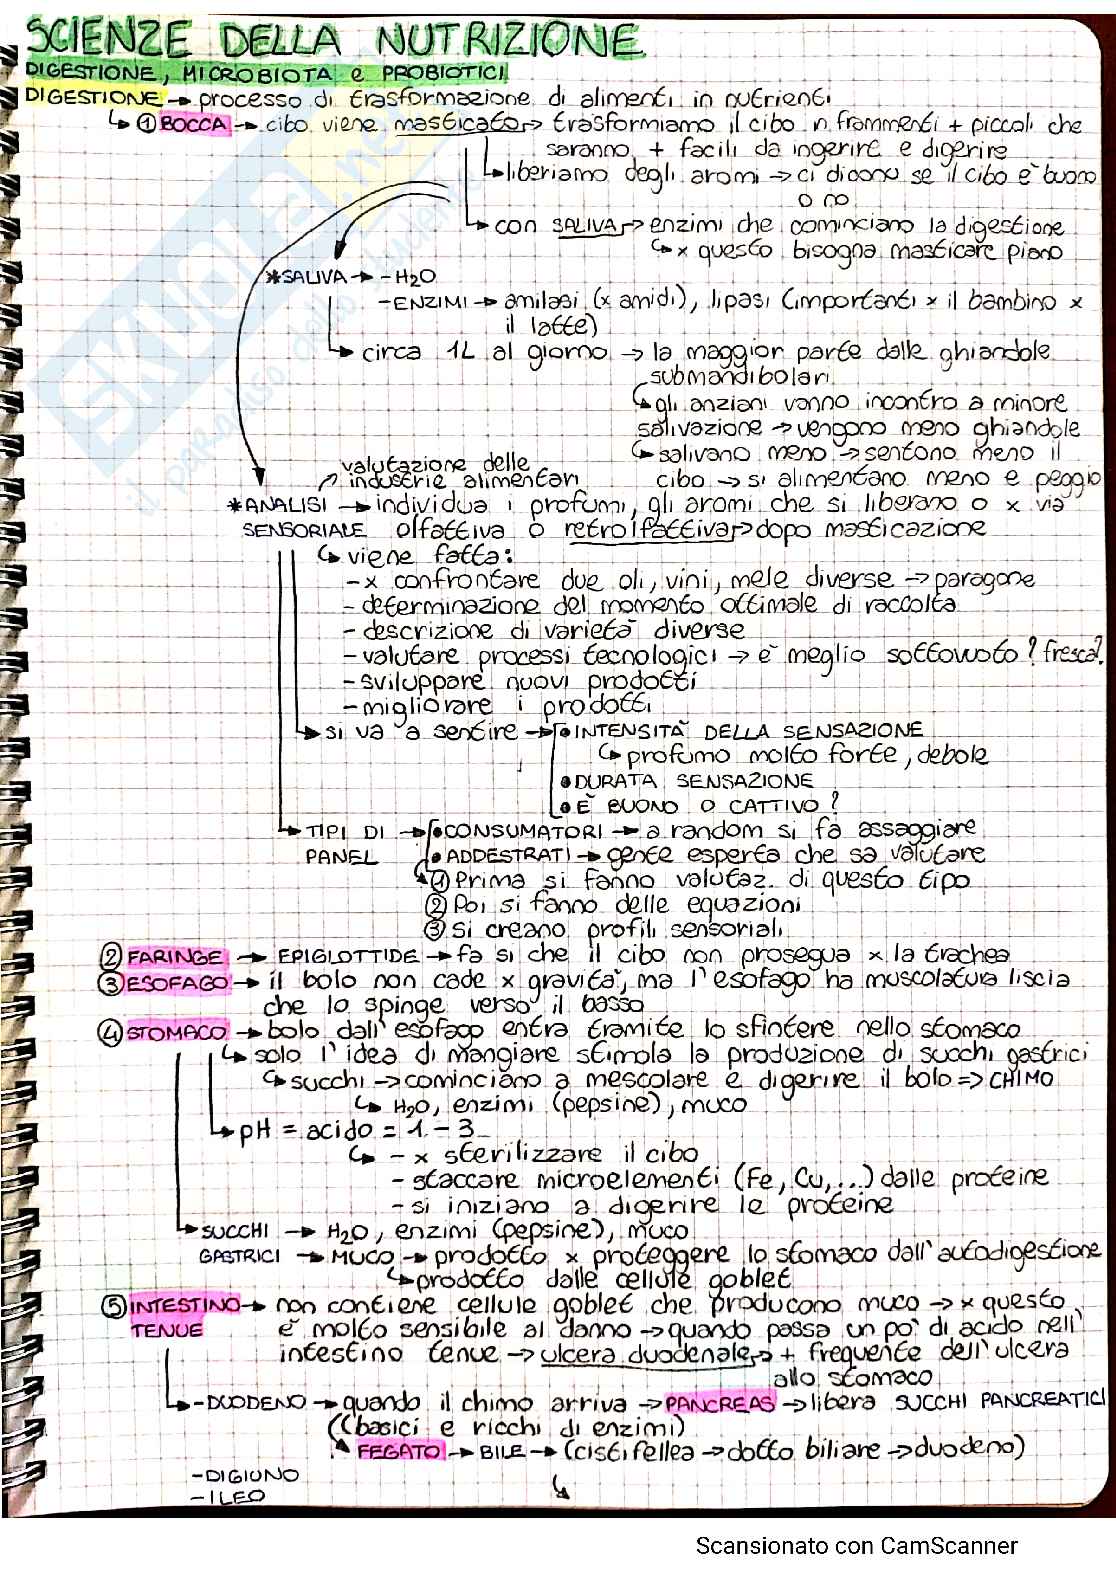 SCIENZE DELLA NUTRIZIONE
DIGESTIONE, MICROBIOTA e PROBIOTICI
DIGESTIONE → processo di trasformazione di alimenti in nutrienti
↳ ① BOCCA → cibo viene masticato → trasformiamo il cibo in frammenti + piccoli che
saranno + facili da ingerire e digerire
↳ liberiamo degli aromi → ci dicono se il cibo è buono
o no
↳ con SALIVA → enzimi che cominciano la digestione
↳ x questo bisogna masticare piano
*SALIVA → - H₂O
- ENZIMI → amilasi (x amidi), lipasi (importanti x il bambino x
il latte)
↳ circa 1L al giorno → la maggior parte dalle ghiandole
submandibolari
↳ gli anziani vanno incontro a minore
salivazione → vengono meno ghiandole
↳ salivano meno → sentono meno il
cibo → si alimentano meno e peggio
valutazione delle
industrie alimentari
*ANALISI → individua i profumi, gli aromi che si liberano o x via
SENSORIALE olfattiva o retrolfattiva → dopo masticazione
↳ viene fatta:
- x confrontare due oli, vini, mele diverse → paragone
- determinazione del momento ottimale di raccolta
- descrizione di varietà diverse
- valutare processi tecnologici → è meglio sottovuoto? fresca?
- sviluppare nuovi prodotti
- migliorare i prodotti
↳ si va a sentire → • INTENSITÀ DELLA SENSAZIONE
↳ profumo molto forte, debole
• DURATA SENSAZIONE
• È BUONO O CATTIVO?
↳ TIPI DI → • CONSUMATORI → a random si fa assaggiare
PANEL • ADDESTRATI → gente esperta che sa valutare
↳ ① Prima si fanno valutaz. di questo tipo
② Poi si fanno delle equazioni
③ Si creano profili sensoriali
② FARINGE → EPIGLOTTIDE → fa si che il cibo non prosegua x la trachea
③ ESOFAGO → il bolo non cade x gravità, ma l'esofago ha muscolatura liscia
che lo spinge verso il basso
④ STOMACO → bolo dall'esofago entra tramite lo sfintere nello stomaco
↳ solo l'idea di mangiare stimola la produzione di succhi gastrici
↳ succhi → cominciano a mescolare e digerire il bolo => CHIMO
↳ H₂O, enzimi (pepsine), muco
↳ pH = acido = 1 - 3
↳ - x sterilizzare il cibo
- staccare microelementi (Fe, Cu, ...) dalle proteine
- si iniziano a digerire le proteine
↳ SUCCHI → H₂O, enzimi (pepsine), muco
GASTRICI → MUCO → prodotto x proteggere lo stomaco dall'autodigestione
↳ prodotto dalle cellule goblet
⑤ INTESTINO → non contiene cellule goblet che producono muco → x questo
TENUE è molto sensibile al danno → quando passa un po' di acido nell'
intestino tenue → ulcera duodenale → + frequente dell'ulcera
allo stomaco
↳ - DUODENO → quando il chimo arriva → PANCREAS → libera SUCCHI PANCREATICI
(basici e ricchi di enzimi)
↳ FEGATO → BILE → (cistifellea → dotto biliare → duodeno)
- DIGIUNO
- ILEO
Scansionato con CamScanner